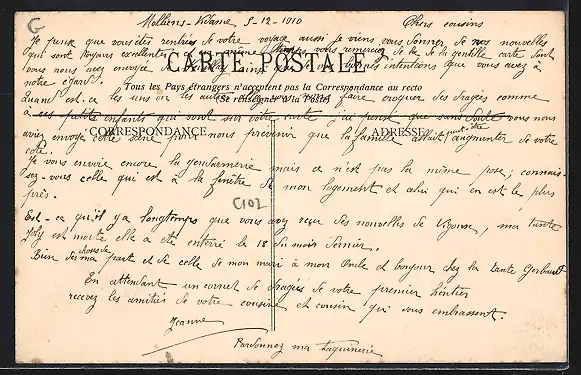 G
Molliens-Vidame 8-12-1910 Chers cousins
Je pense que vous êtes rentrés de votre voyage aussi je viens vous donner de nos nouvelles
qui sont toujours excellentes et en même temps vous remercier de la gentille carte dont
vous nous avez envoyée ainsi que des bonnes intentions que vous avez à
notre égard.
CARTE POSTALE
Tous les Pays étrangers n'acceptent pas la Correspondance au recto
(Se renseigner à la Poste)
Quand est-ce les uns ou les autres nous ferez croquer des dragées comme
à ces petits enfants qui sont sur votre carte j'ai pensé que sans doute vous nous
CORRESPONDANCE
ADRESSE
aviez envoyé cette scène pour nous prévenir que la famille allait peut-être augmenter de votre
coté.
Je vous envoie encore la gendarmerie mais ce n'est pas la même pose; connais-
sez-vous celle qui est à la fenêtre de mon logement et celui qui en est le plus
près.
C102
Est-ce qu'il y a longtemps que vous avez reçu des nouvelles de, ma tante
Joly est morte elle a été enterré le 18 du mois dernier.
Bien des choses de ma part et de celle de mon mari à mon Oncle et bonjour chez la tante
En attendant un cornet de dragées de votre premier héritier
recevez les amitiés de votre cousine et cousin qui vous embrassent.
Jeanne
Pardonnez ma taquinerie